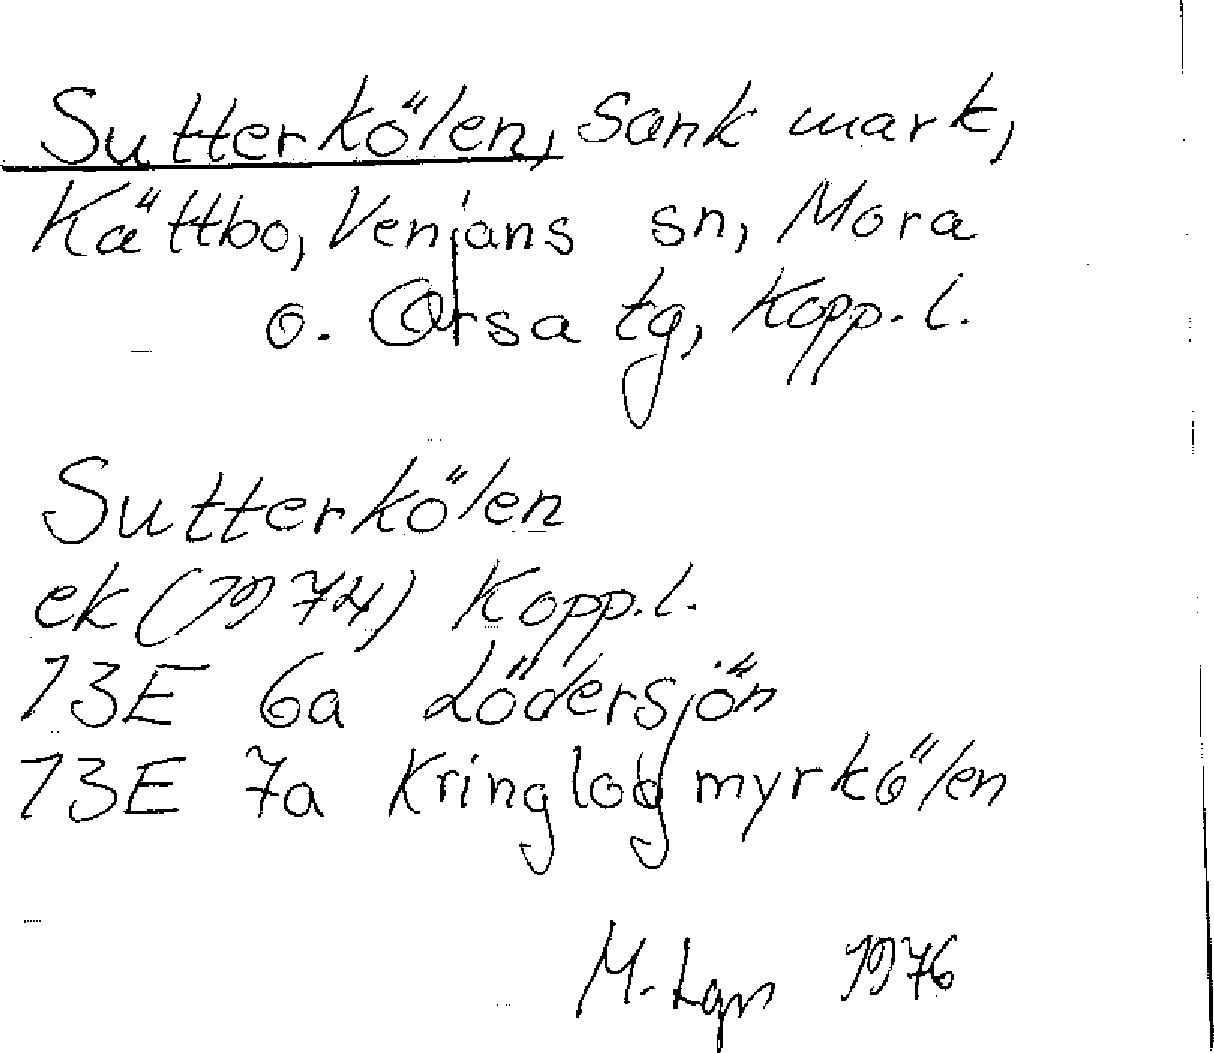 Sutterkölen, Sank mark,
Kättbo, Venjans sn, Mora
o. Orsa tg, Kopp.l.
Sutterkölen
ek (1974) Kopp.l.
13E 6a Lödersjön
13E 7a Kringlogmyrkölen
M. Lgn 1976